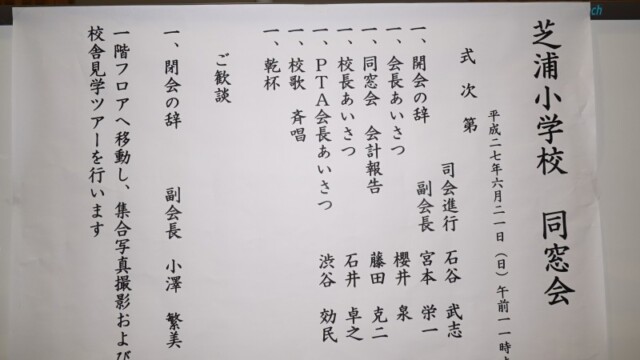 芝浦小学校 同窓会
平成二七年六月二一日（日）午前一一時
式次第
司会進行 石谷 武志
一、開会の辞 副会長 宮本 栄一
一、会長あいさつ 櫻井 泉
一、同窓会 会計報告 藤田 克二
一、校長あいさつ 石井 卓之
一、ＰＴＡ会長あいさつ 渋谷 効民
一、校歌 斉唱
一、乾杯
ご歓談
一、閉会の辞 副会長 小澤 繁美
一階フロアへ移動し、集合写真撮影および
校舎見学ツアーを行います
ch